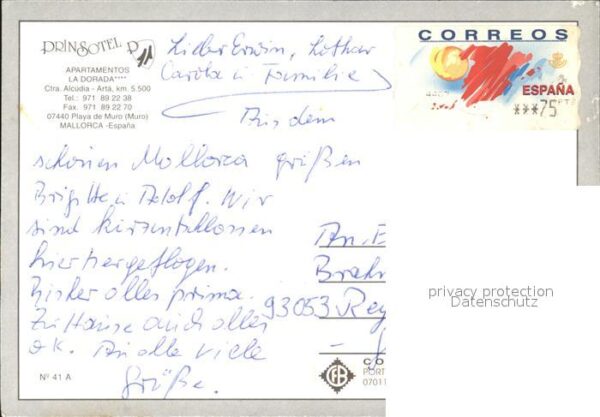 PRINSOTEL
APARTAMENTOS
LA DORADA****
Ctra. Alcúdia - Artá, km. 5.500
Tel.: 971 89 22 38
Fax. 971 89 22 70
07440 Playa de Muro (Muro)
MALLORCA -España-
CORREOS
ESPAÑA
***75 PTA
Lieber Erwin, Lothar
Carola u. Familie
Aus dem
schönen Mallorca grüßen
Brigitte u. Adolf. Wir
sind kurzentschlossen
hierhergeflogen.
Bisher alles prima.
Zu Hause auch alles
o.k. An alle viele
Grüße.
An E
93053 Reg
privacy protection
Datenschutz
Nº 41 A
CO
PORT
07011